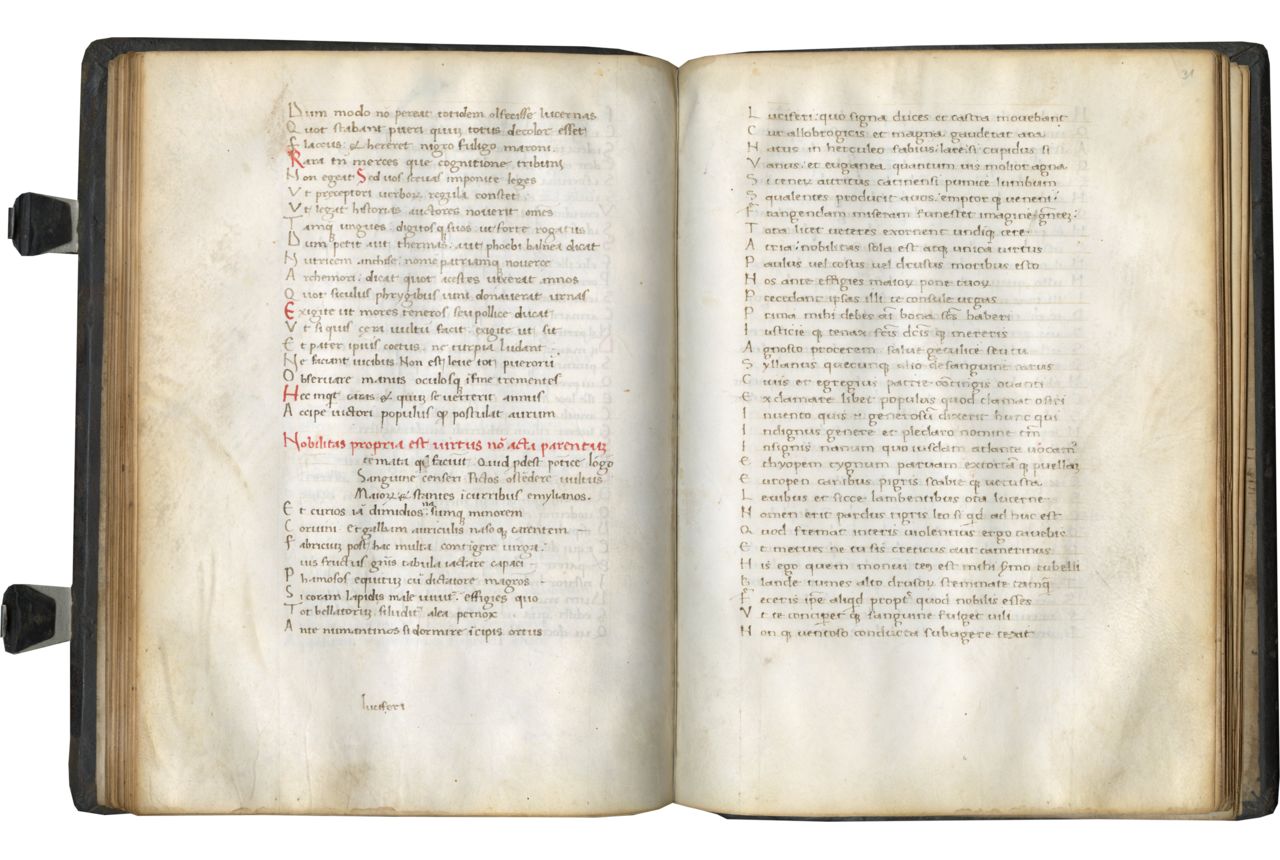 Dum modo nō pereat totidem olfecisse lucernas
Quot stabant pueri quum totus decolor esset
Flaccus & hereret nigro fuligo maroni.
Rara tn̄ merces que cognitione tribuni
Non egeat Sed uos sçuas imponite leges
Vt preceptori uerborꝝ regula constet
Vt legat historias auctores nouerit om̄es
Tamqꝫ ungues digitosqꝫ suos ut forte rogatus
Dum petit aut thermas. aut phoebi balnea dicat
Nutricem anchise: nomē patriamqꝫ nouerce
Archemori: dicat quot acestes uixerat annos
Quot siculus phrygibus uini donauerat urnas
Exigite ut mores teneros ceu pollice ducat
Vt si quis cera uultū facit. exigite ut sit
Et pater ipsius coetus, ne turpia ludant
Ne faciant uicibus Non est leue tot puerorū
Obseruare manus oculosqꝫ ī fine trementes
Hec inqt̄ curas & quū se uerterit annus
Accipe uictori populus qđ postulat aurum
Nobilitas propria est uirtus nō acta parentum
temata qd̄ faciūt Quid pdest pōtice lōgo
Sanguine censeri Pictos ostēdere uultus
Maiorꝝ & stantes ī curribus emylianos.
Et curios iā dimidios nasūmqꝫ minorem
Coruini et galbam auriculis nasoqꝫ carentem
Fabricium post hac multa contīgere uirga.
uis fructus gn̄is tabula iactare capaci
Phamosos equitū cū dictatore magros
Si coram lapidis male uiuit̄ effigies quo
Tot bellatorꝝ si ludit̄ alea pernox
Ante numantinos si dormire īcipis ortus
luciferi
31
Luciferi: quo signa duces et castra mouebant
Cur allobrogicis et magna gaudeat ara
Natus in herculeo fabius lare: si cupidus si
Vanus: et euganea quantum uis molior agna
Si tenerū attritus catinensi pumice lumbum
Squalentes producit auos: emptor qꝫ ueneni
Frangendam miseram funestet imagine gentē:
Tota licet ueteres exornent undiqꝫ cere
Atria: nobilitas sola est atqꝫ unica uirtus
Paulus uel cossus uel drusus moribus esto
Hos ante effigies maiorꝝ pone tuorꝝ
Precedant ipsas illi te consule uirgas
Prima mihi debes ai bona scs̄ haberi
Iusticieqꝫ tenax fcīs dcīs qꝫ mereris
Agnosco procerem salue getulice seu tu
Syllanus quecunqꝫ alio de sanguine ratus
Ciuis et egregius patrie contīngis ouanti
Exclamare libet populus quod clamat osiri
Inuento quis n̄ generosū dixerit hunc qui
Indignus genere et pleclaro nomine tm̄
Insignis nanum quoiusdam atlante uocam̄
Ethyopem cygnum paruam extortāqꝫ puellam
Europen canibus pigris scabieqꝫ uetusta
Leuibus et sicce lambentibus ora lucerne
Nomen erit pardus tigris leo si qd̄ ad huc est
Quod fremat in terris uiolentius ergo cauebis
Et metues ne tu sis creticus aut camerinus
His ego quem monui tecū est mihi sermo rubelli
Blande tumes alto drusorꝝ stemmate tāmqꝫ
Feceris ipse aliqd propt̄ quod nobilis esses
Vt te conciperet qꝫ sanguine fulget iuli
Non qꝫ uentoso conducta sub aggere texit